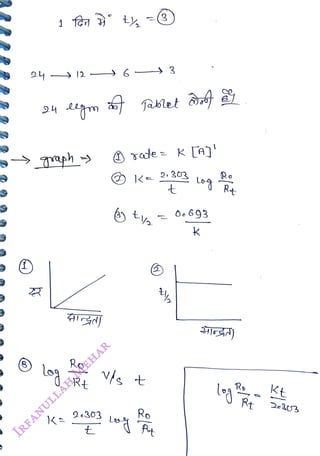 1 दिन में t1/2 = ③
24 → 12 → 6 → 3
24 ugm की Tablet लेनी है।
→ graph → ① rate = K [A]¹
② K = 2.303/t log R₀/Rt
③ t1/2 = 0.693/K
①
दर
सान्द्रता
②
t1/2
सान्द्रता
③ log R₀/Rt V/s t
K = 2.303/t log R₀/Rt
log R₀/Rt = Kt/2.303
IRFANULLAH MEHAR